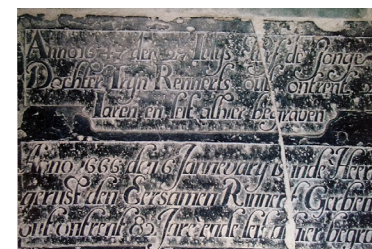 Anno 16 den July de Jonge
Dochter Trijn Rennerts out ontrent
Jaren en leit alhier begraven
Anno 1666 de 16 Januwary is inde Heer
gerust den Eersamen Rinnert Gerben
out ontrent 80 Jare ende leit alhier begra